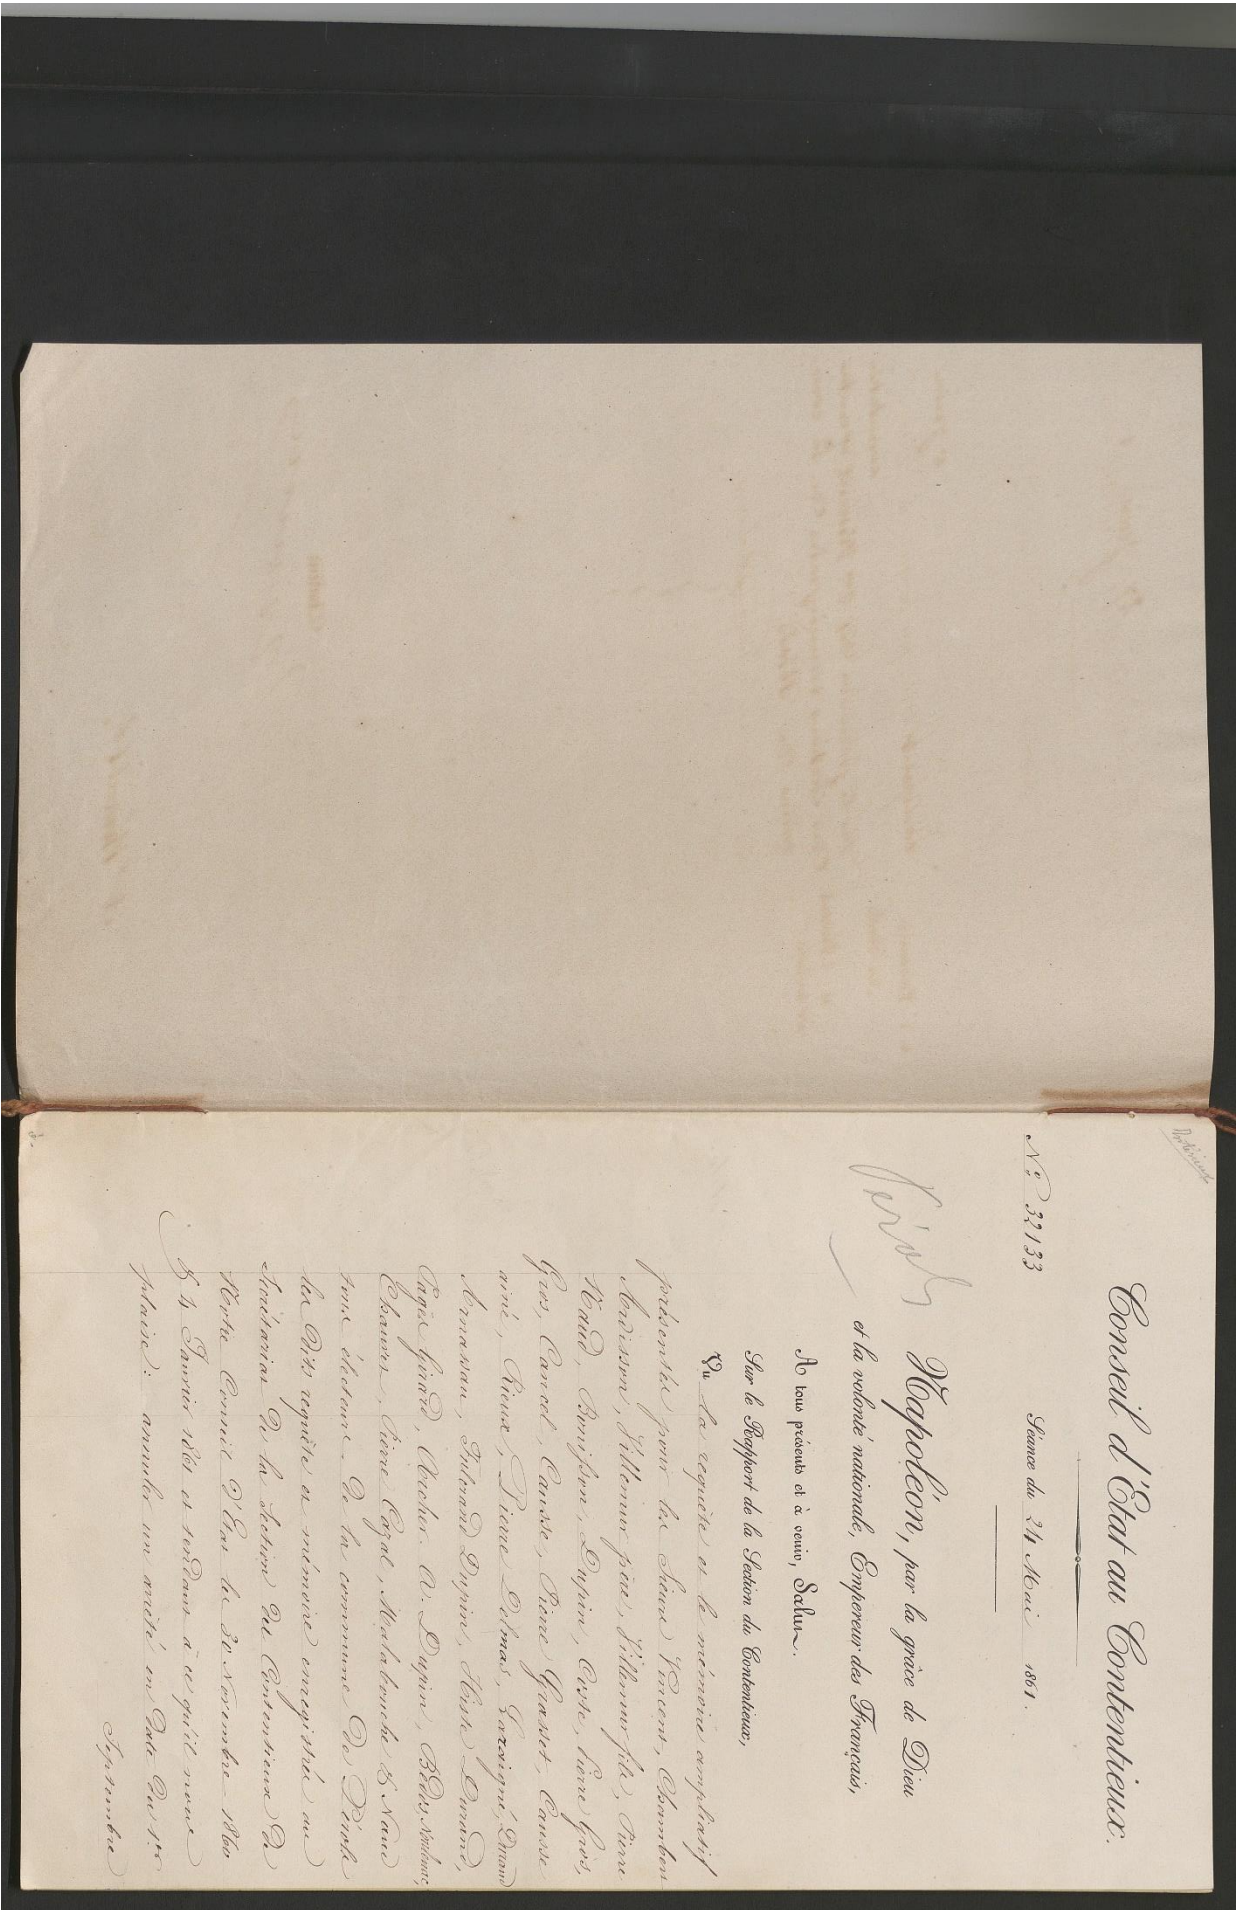 Conseil d'État au Contentieux.
N° 32133
Séance du 24 Mai 1861.
Napoléon, par la grâce de Dieu
et la volonté nationale, Empereur des Français,
A tous présents et à venir, Salut.
Sur le Rapport de la Section du Contentieux,
Vu la requête et le mémoire ampliatif
présentés pour les Sieurs Vincent, Chambert
Ardisson, Villemur père, Villemur fils, Pierre
Naud, Bonifson, Dupin, Cosse, Pierre Gros,
Gros, Cancel, Causse, Pierre Grasset, Causse
ainé, Rieux, Pierre Delmas,
Arnassau, Dupin, Durand,
Pagès Girard, Archer. A. Dupin,
Pierre Cazal, Malabouche & Naud
tous électeurs de la commune de
les dits requête et mémoire enregistrés au
Secrétariat de la Section du Contentieux de
Notre Conseil d'État les 30 Novembre 1860
& 4 Janvier 1861 et tendant à ce qu'il nous
plaise: annuler un arrêté en date du 1er
Septembre